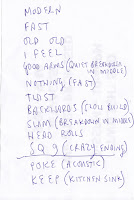 MODERN
FAST
OLD OLD
I FEEL
GOOD ARMS (QUIET BREAKDOWN IN MIDDLE)
NOTHING (FAST)
TWIST
BACKWARDS (SLOW BUILD)
SLAM (BREAKDOWN IN MIDDLE)
HEAD ROLLS
SQ 9 (CRAZY ENDING)
POKE (ACOUSTIC)
KEEP (KITCHEN SINK)